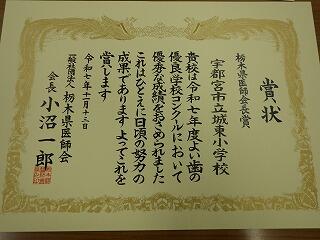 賞状
栃木県医師会長賞
宇都宮市立城東小学校
貴校は令和七年度よい歯の
優良学校コンクールにおいて
優秀な成績をおさめられました
これはひとえに日頃の努力の
成果であります よってこれを
賞します
令和七年十一月十三日
一般社団法人 栃木県医師会
会長 小沼一郎